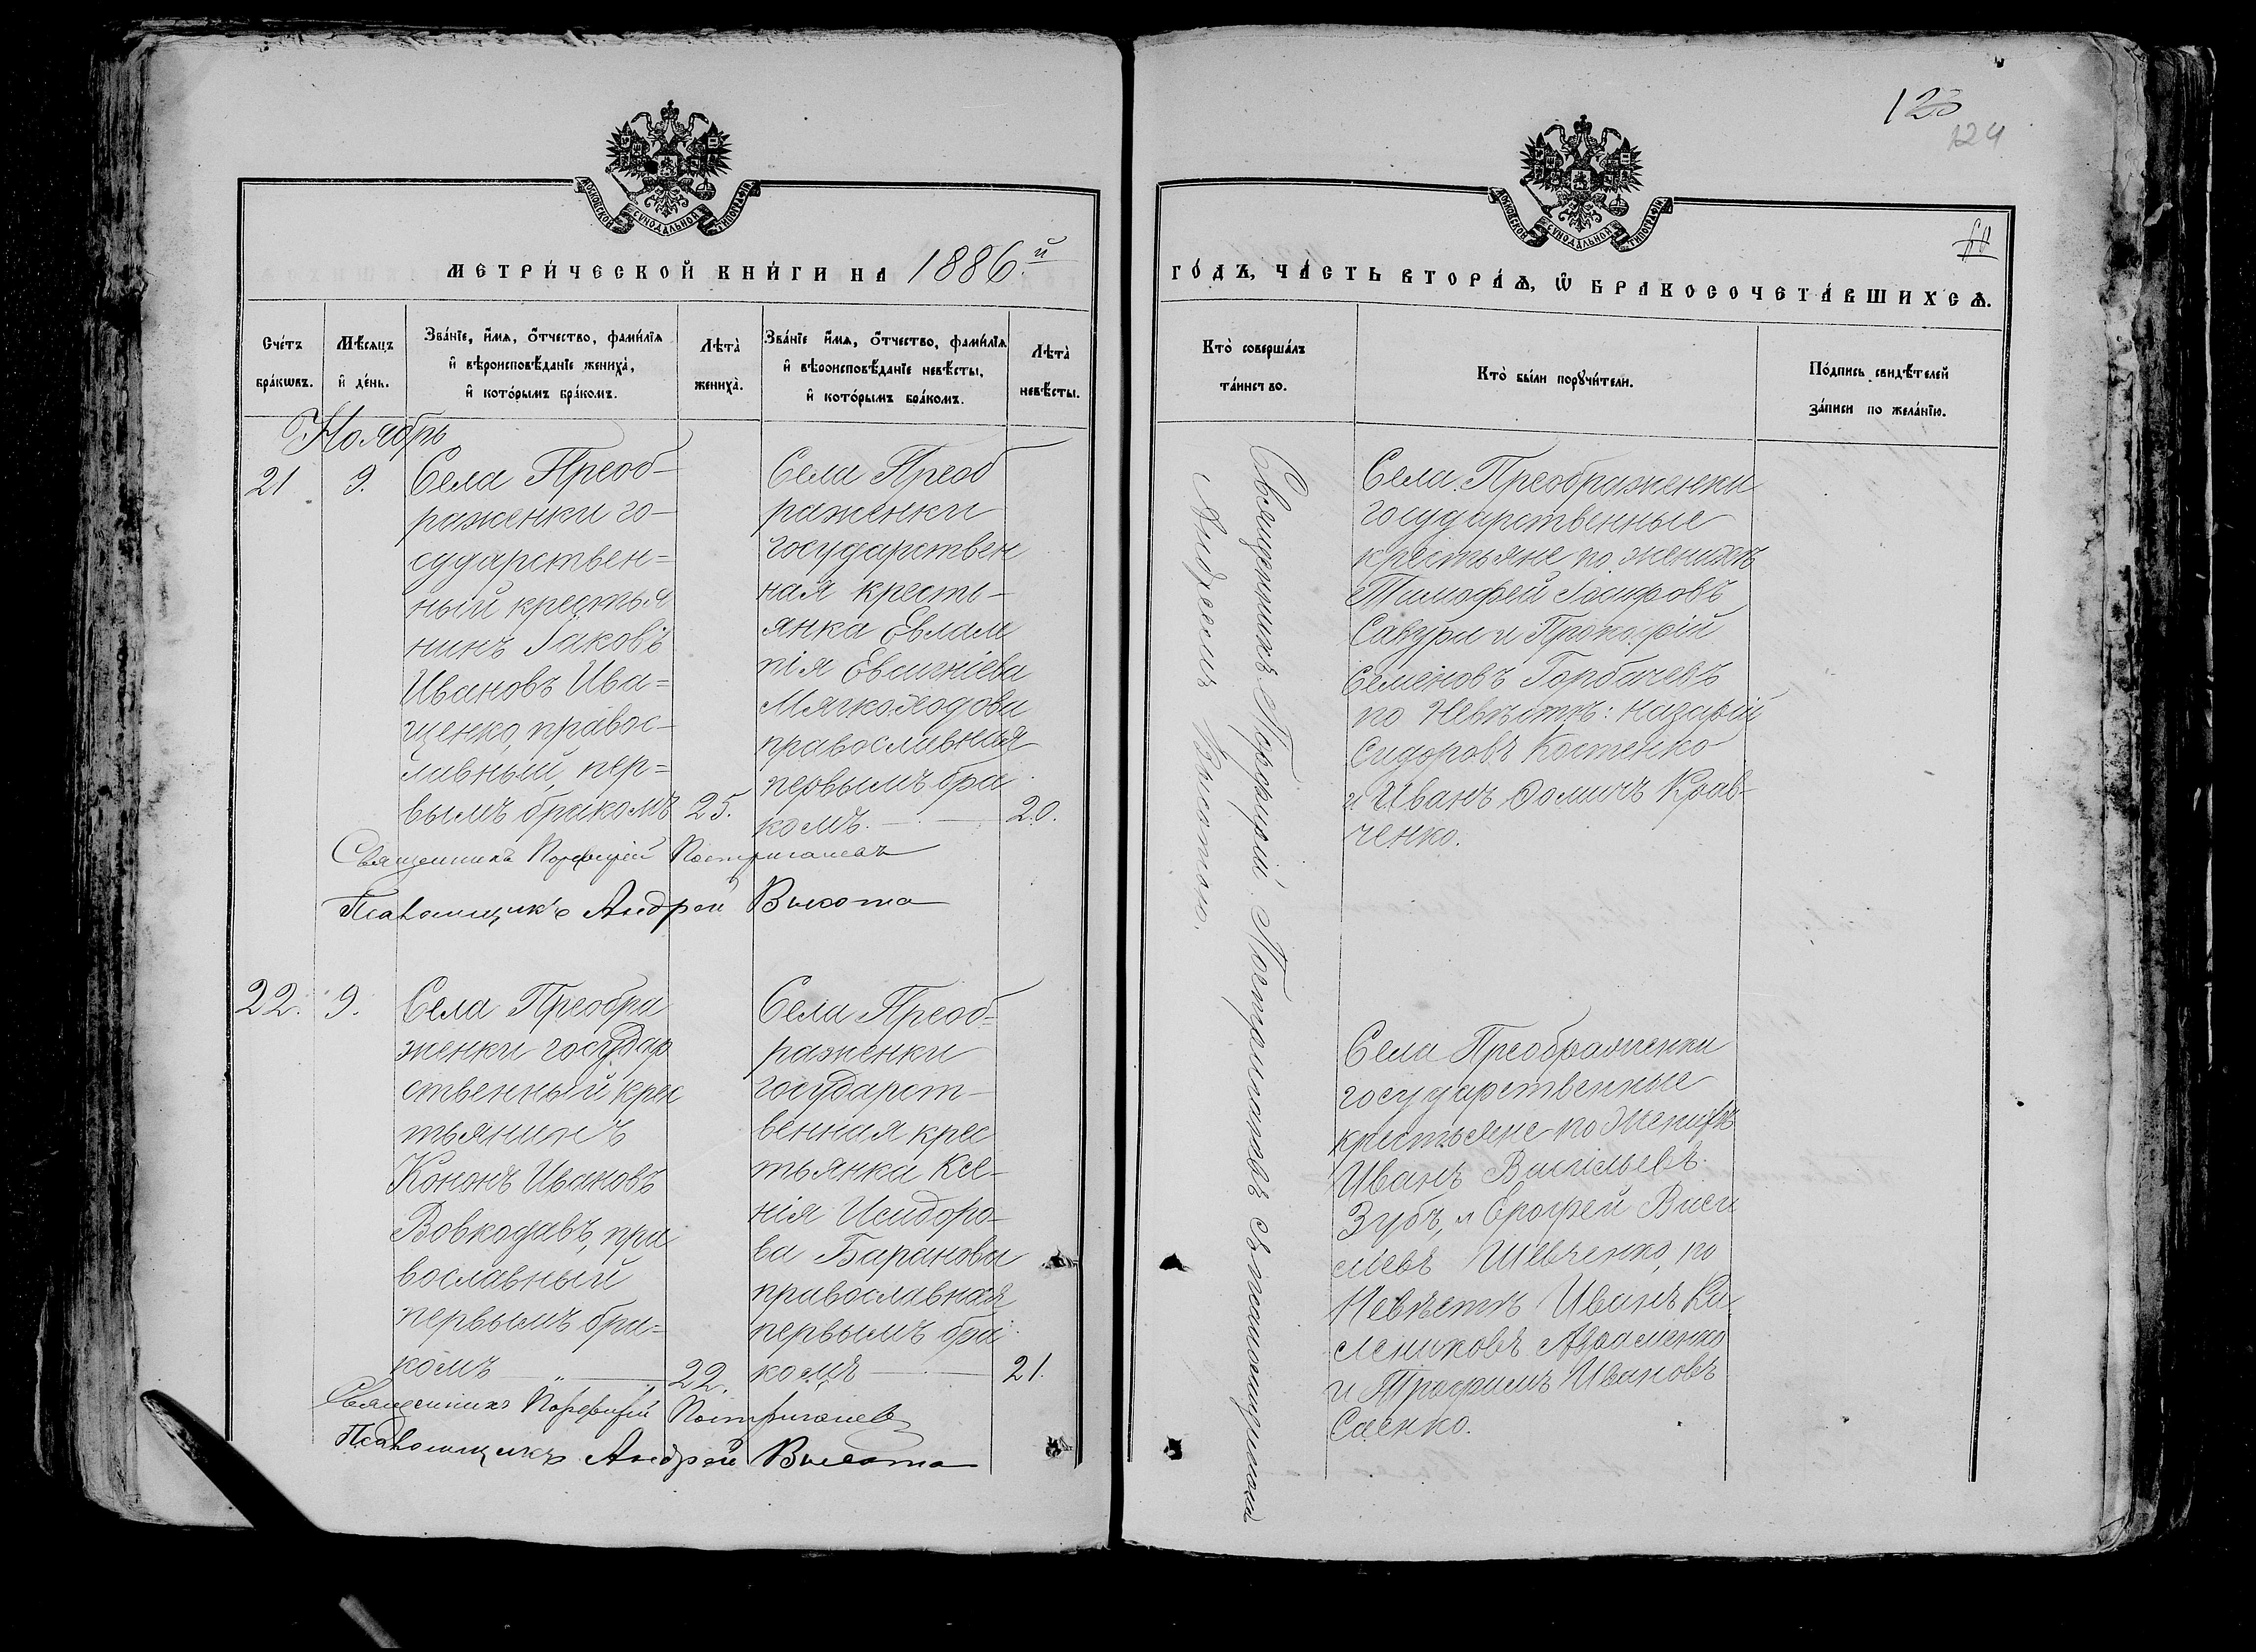 123
124
60
МОСКОВСКОЙ СѴНОДАЛЬНОЙ ТИПОГРАФІИ
МЕТРИ́ЧЕСКОЙ КНИ́ГИ НА 1886.й
Сче́тъ бра́кѡвъ.
Мѣ́сяцъ и҆ де́нь.
Зва́нїе, и҆́мѧ, ѻ҆́тчество, фами́лїѧ
и҆ вѣроисповѣ́данїе жениха̀,
и҆ кото́рымъ бра́комъ.
Лѣта̀ жениха̀.
Зва́нїе и҆́мѧ, ѻ҆́тчество, фами́лїѧ
и҆ вѣроисповѣ́данїе невѣ́сты,
и҆ кото́рымъ бра́комъ.
Лѣта̀ невѣ́сты.
Ноябрь
21 9.
Села Преоб-
раженки го-
сударствен=
ный крестья
нинъ Іаковъ
Ивановъ Ива=
щенко, правос-
лавный, пер=
вымъ бракомъ 25.
Села Преоб
раженки
государствен
ная кресть-
янка Евлам
пія Евсигніева
Мягкоходова
православная
первымъ бра
комъ. — 20.
Священникъ Порфирій Постригачевъ
Псаломщикъ Андрей Высота
22. 9.
Села Преобра
женки государ
ственный крес
тьянинъ
Кононъ Ивановъ
Вовкодавъ, пра
вославный
первымъ бра=
комъ — 22.
Села Преоб=
раженки
государст-
венная крес
тьянка Ксе-
нія Исидоро-
ва Баранова
православная
первымъ бра
комъ — 21.
Священникъ Порфирій Постригачевъ
Псаломщикъ Андрей Высота
МОСКОВСКОЙ СѴНОДАЛЬНОЙ ТИПОГРАФІИ
ГО́ДЪ, ЧА́СТЬ ВТОРА́Ѧ, Ѡ҆ БРАКОСОЧЕТА́ВШИХСѦ.
Кто̀ соверша́лъ
та́инство.
Кто̀ бы́ли порꙋчи́тели.
По́дпись свидѣ́телей
за́писи по жела́нїю.
Священникъ Порфирій Постригачевъ съ псаломщикомъ
Андреемъ Высотою.
Села Преображенки
государственные
крестьяне по женихѣ
Тимофей Іосифовъ
Савура и Прокофій
Семеновъ Горбачевъ
по Невѣстѣ: Назарій
Сидоровъ Костенко
и Иванъ Фоминъ Крав-
ченко.
Села Преображенки
государственные
крестьяне по Женихѣ
Иванъ Васильевъ
Зубъ, и Ерофей Васи
льевъ Шевченко, по
Невѣстѣ Иванъ Ка
лениковъ Авраменко
и Трофимъ Ивановъ
Саенко.